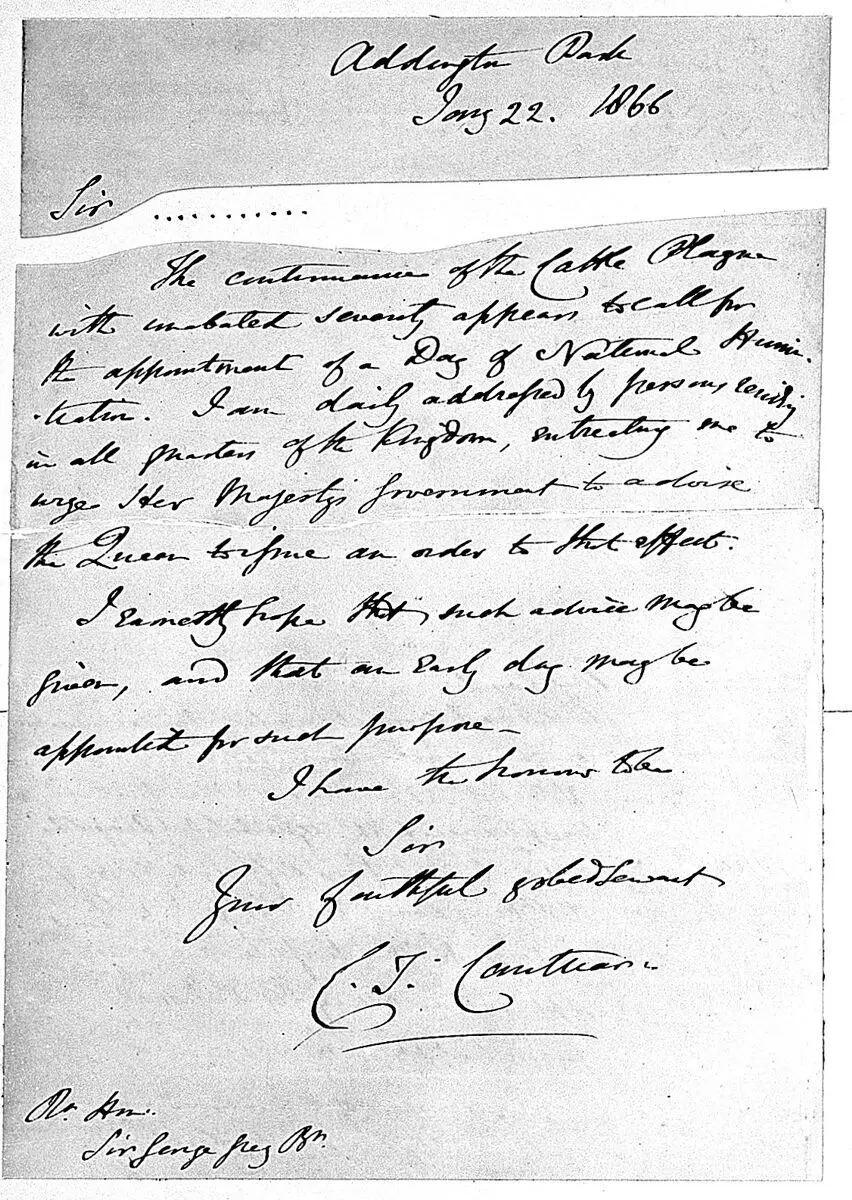 Addington Park
Jany 22. 1866
Sir ............
The continuance of the Cattle Plague
with unabated severity appears to call for
the appointment of a Day of National Humi-
-liation. I am daily addressed by persons, residing
in all quarters of the Kingdom, entreating me to
urge Her Majesty's Government to advise
the Queen to issue an order to that effect.
I earnestly hope that such advice may be
given, and that an early day may be
appointed for such purpose –
I have the honour to be
Sir
Your faithful & obed Servant
C. T. Cantuar:
Rt. Hon.
Sir George Grey Bt.